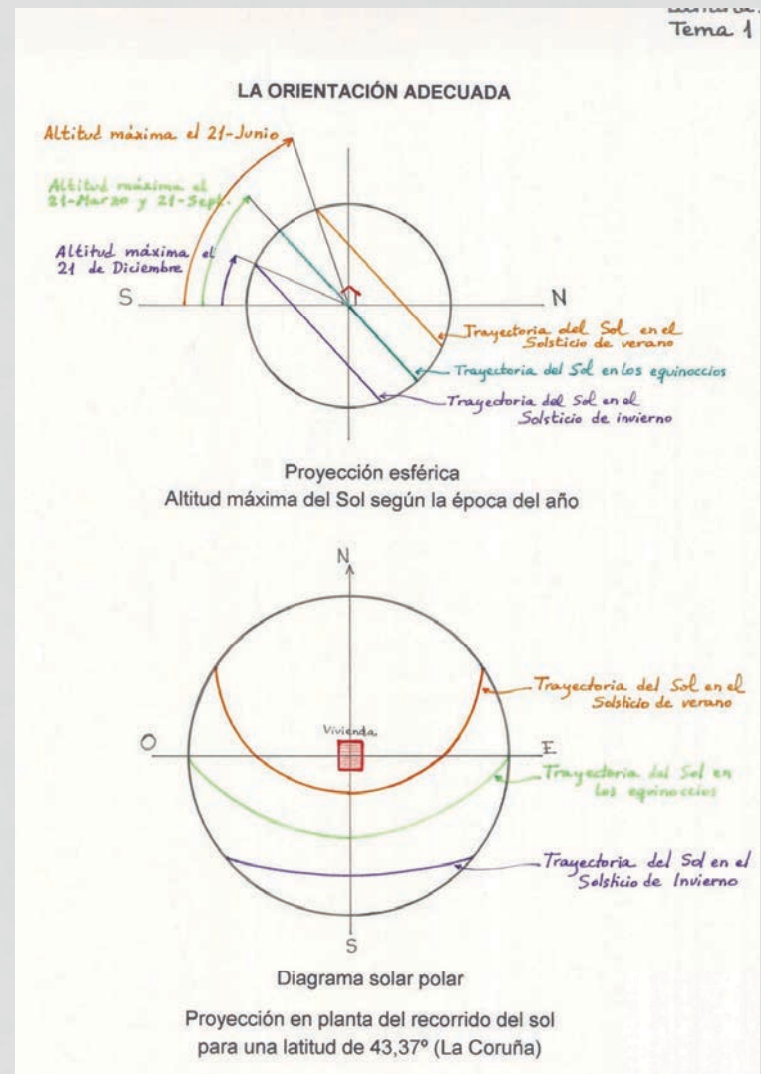 Tema 1
LA ORIENTACIÓN ADECUADA
Altitud máxima el 21-Junio
Altitud máxima el
21-Marzo y 21-Sept.
Altitud máxima el
21 de Diciembre
S
N
Trayectoria del Sol en el
Solsticio de verano
Trayectoria del Sol en los equinoccios
Trayectoria del Sol en el
Solsticio de invierno
Proyección esférica
Altitud máxima del Sol según la época del año
N
Trayectoria del Sol en el
Solsticio de verano
Vivienda
O
E
Trayectoria del Sol en
los equinoccios
Trayectoria del Sol en el
Solsticio de Invierno
S
Diagrama solar polar
Proyección en planta del recorrido del sol
para una latitud de 43,37º (La Coruña)